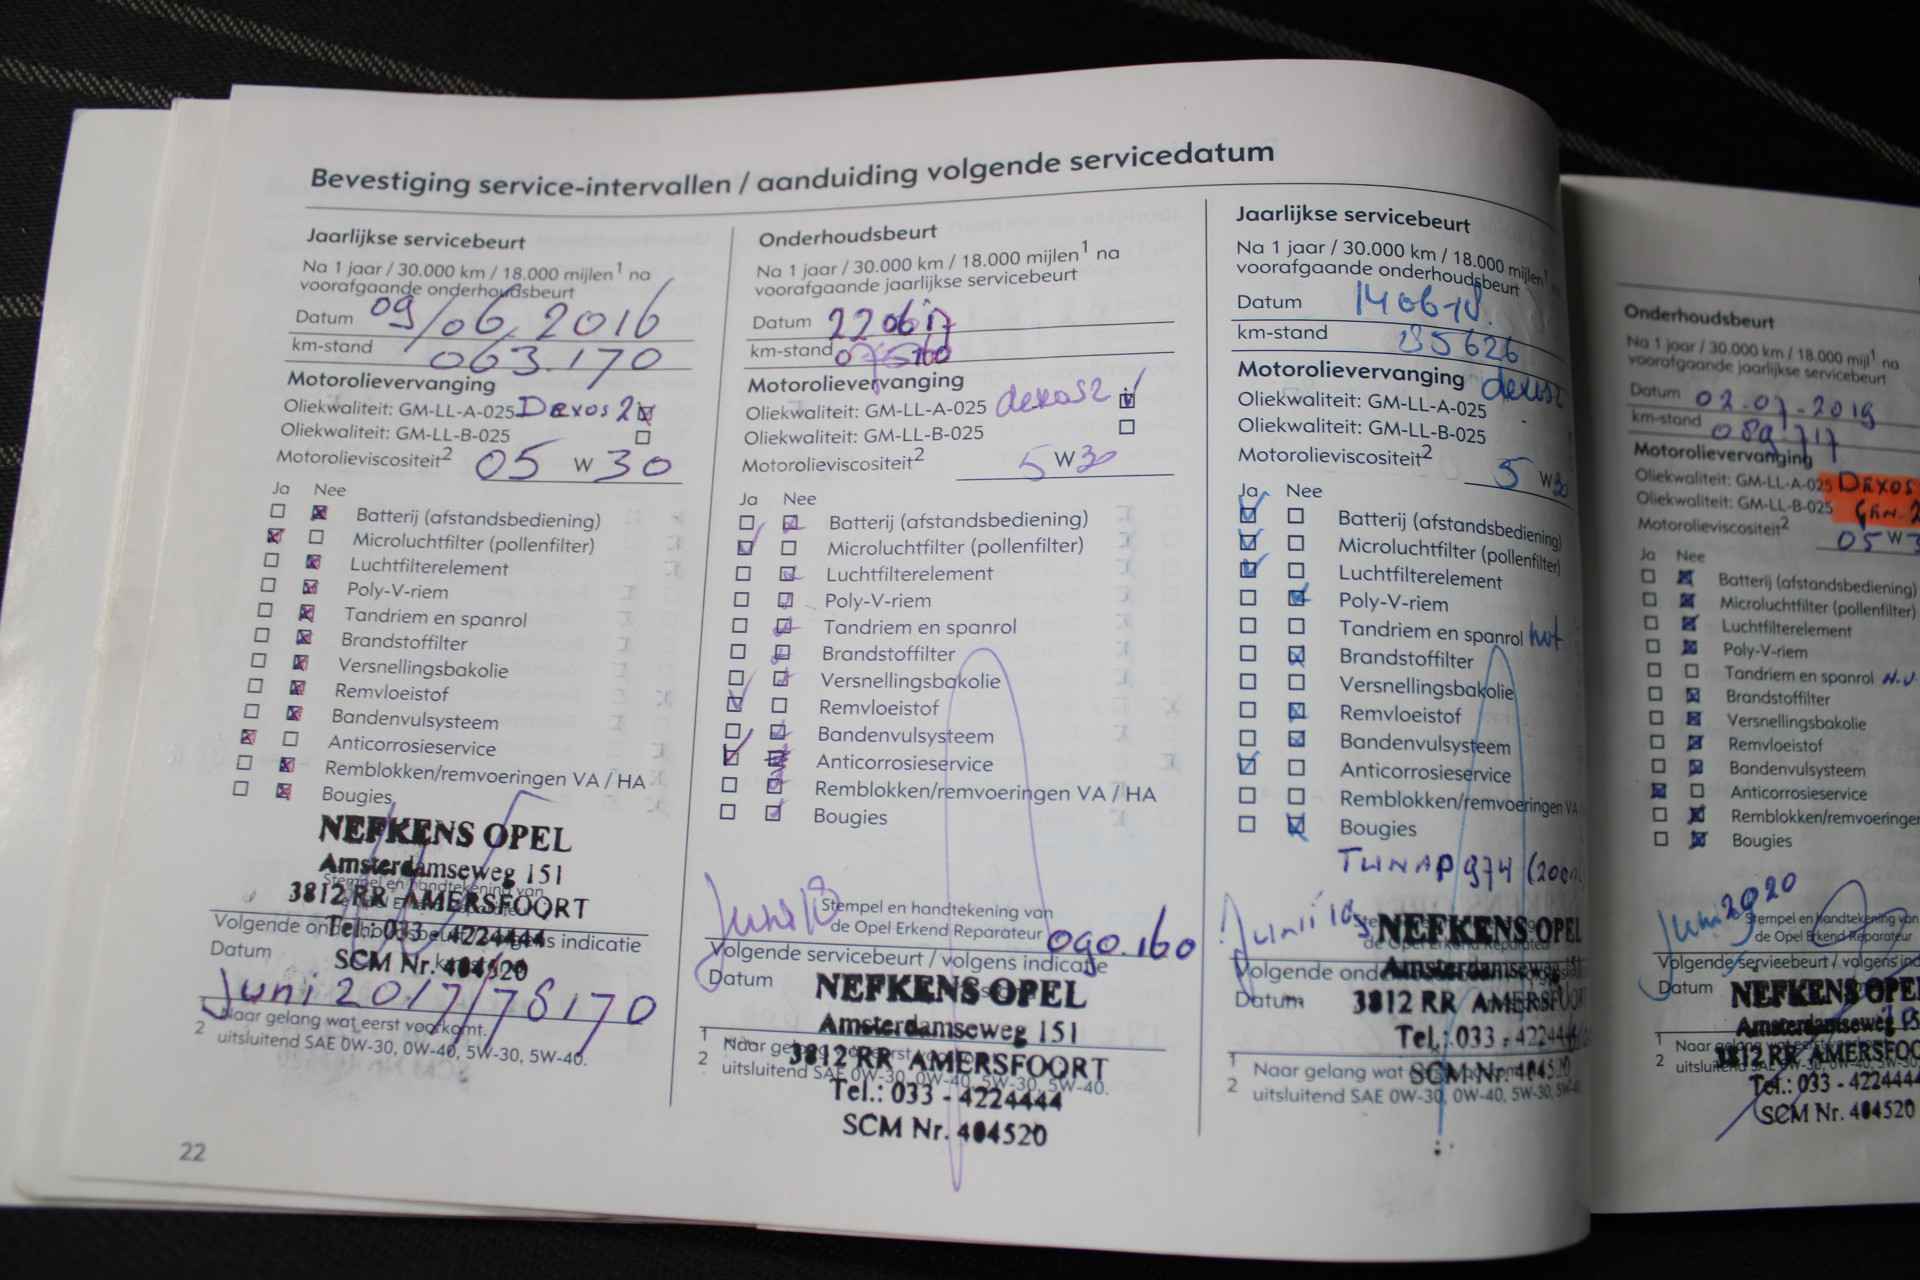 Bevestiging service-intervallen / aanduiding volgende servicedatum
Jaarlijkse servicebeurt
Na 1 jaar / 30.000 km / 18.000 mijlen¹ na
voorafgaande onderhoudsbeurt
Datum 09/06.2016
km-stand 063.170
Motorolievervanging
Oliekwaliteit: GM-LL-A-025 Dexos 2
Oliekwaliteit: GM-LL-B-025
Motorolieviscositeit² 05 W 30
Ja Nee
Batterij (afstandsbediening)
Microluchtfilter (pollenfilter)
Luchtfilterelement
Poly-V-riem
Tandriem en spanrol
Brandstoffilter
Versnellingsbakolie
Remvloeistof
Bandenvulsysteem
Anticorrosieservice
Remblokken/remvoeringen VA / HA
Bougies
NEFKENS OPEL
Amsterdamseweg 151
Stempel en handtekening van
3812 RR AMERSFOORT
Volgende indicatie
Tel.: 033 - 4224444
Datum
SCM Nr. 404520
Juni 2017/78170
Naar gelang wat eerst voorkomt.
2 uitsluitend SAE 0W-30, 0W-40, 5W-30, 5W-40.
22
Onderhoudsbeurt
Na 1 jaar / 30.000 km / 18.000 mijlen¹ na
voorafgaande jaarlijkse servicebeurt
Datum 22 06 17
km-stand
Motorolievervanging
Oliekwaliteit: GM-LL-A-025 dexos2
Oliekwaliteit: GM-LL-B-025
Motorolieviscositeit² 5 W 30
Ja Nee
Batterij (afstandsbediening)
Microluchtfilter (pollenfilter)
Luchtfilterelement
Poly-V-riem
Tandriem en spanrol
Brandstoffilter
Versnellingsbakolie
Remvloeistof
Bandenvulsysteem
Anticorrosieservice
Remblokken/remvoeringen VA / HA
Bougies
Juni 18
Stempel en handtekening van
de Opel Erkend Reparateur
090.160
Volgende servicebeurt / volgens indicatie
Datum
NEFKENS OPEL
Amsterdamseweg 151
1 Naar gelang
3812 RR AMERSFOORT
2 uitsluitend SAE 0W-30, 0W-40, 5W-30, 5W-40.
Tel.: 033 - 4224444
SCM Nr. 404520
Jaarlijkse servicebeurt
Na 1 jaar / 30.000 km / 18.000 mijlen¹
voorafgaande onderhoudsbeurt
Datum 14 06 18.
km-stand 85626
Motorolievervanging
Oliekwaliteit: GM-LL-A-025
Oliekwaliteit: GM-LL-B-025
Motorolieviscositeit² 5 W 30
Ja Nee
Batterij (afstandsbediening)
Microluchtfilter (pollenfilter)
Luchtfilterelement
Poly-V-riem
Tandriem en spanrol
Brandstoffilter
Versnellingsbakolie
Remvloeistof
Bandenvulsysteem
Anticorrosieservice
Remblokken/remvoeringen VA
Bougies
TUNAP 974
NEFKENS OPEL
Volgende
Amsterdamseweg
Datum
3812 RR AMERSFOORT
Tel.: 033 - 422444
1 Naar gelang wat
SCM Nr. 404520
2 uitsluitend SAE 0W-30, 0W-40, 5W-30,
Onderhoudsbeurt
Na 1 jaar / 30.000 km / 18.000 mijl¹ na
voorafgaande jaarlijkse servicebeurt
Datum 02.07-2019
km-stand 089.717
Motorolievervanging
Oliekwaliteit: GM-LL-A-025 DEXOS
Oliekwaliteit: GM-LL-B-025 GEN. 2
Motorolieviscositeit² 05 W 3
Ja Nee
Batterij (afstandsbediening)
Microluchtfilter (pollenfilter)
Luchtfilterelement
Poly-V-riem
Tandriem en spanrol
Brandstoffilter
Versnellingsbakolie
Remvloeistof
Bandenvulsysteem
Anticorrosieservice
Remblokken/remvoeringen
Bougies
Juni 2020
Stempel en handtekening van
de Opel Erkend Reparateur
Volgende servicebeurt / volgens
Datum
NEFKENS OPEL
Amsterdamseweg
1 Naar gelang
3812 RR AMERSFOO
2 uitsluitend
Tel.: 033 - 4224444
SCM Nr. 404520